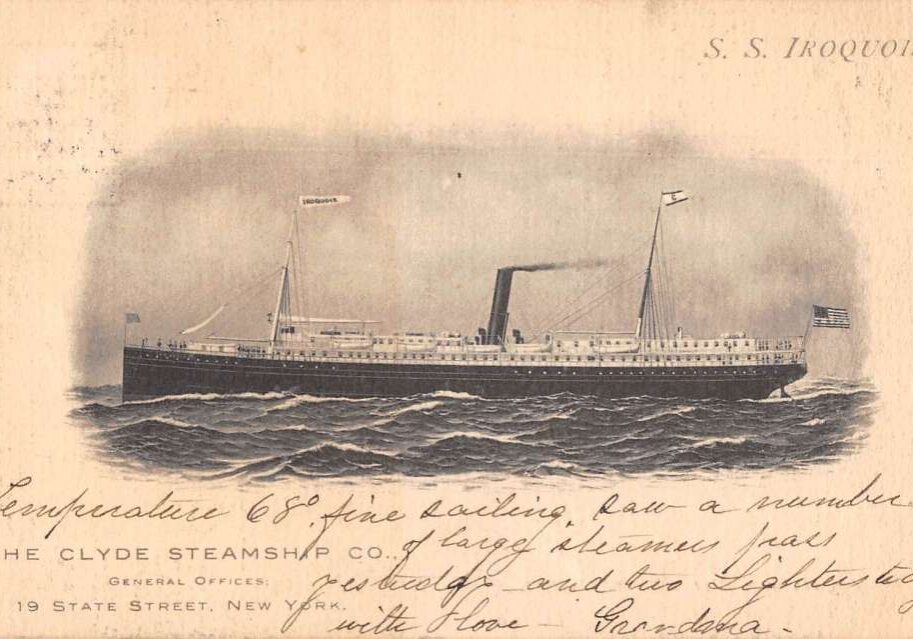 S. S. IROQUOI
IROQUOIS
C
Temperature 68° fine sailing. Saw a number
of large steamers pass
THE CLYDE STEAMSHIP CO.,
GENERAL OFFICES:
yesterday and two Lighters
19 STATE STREET, NEW YORK.
with love – Grandma –